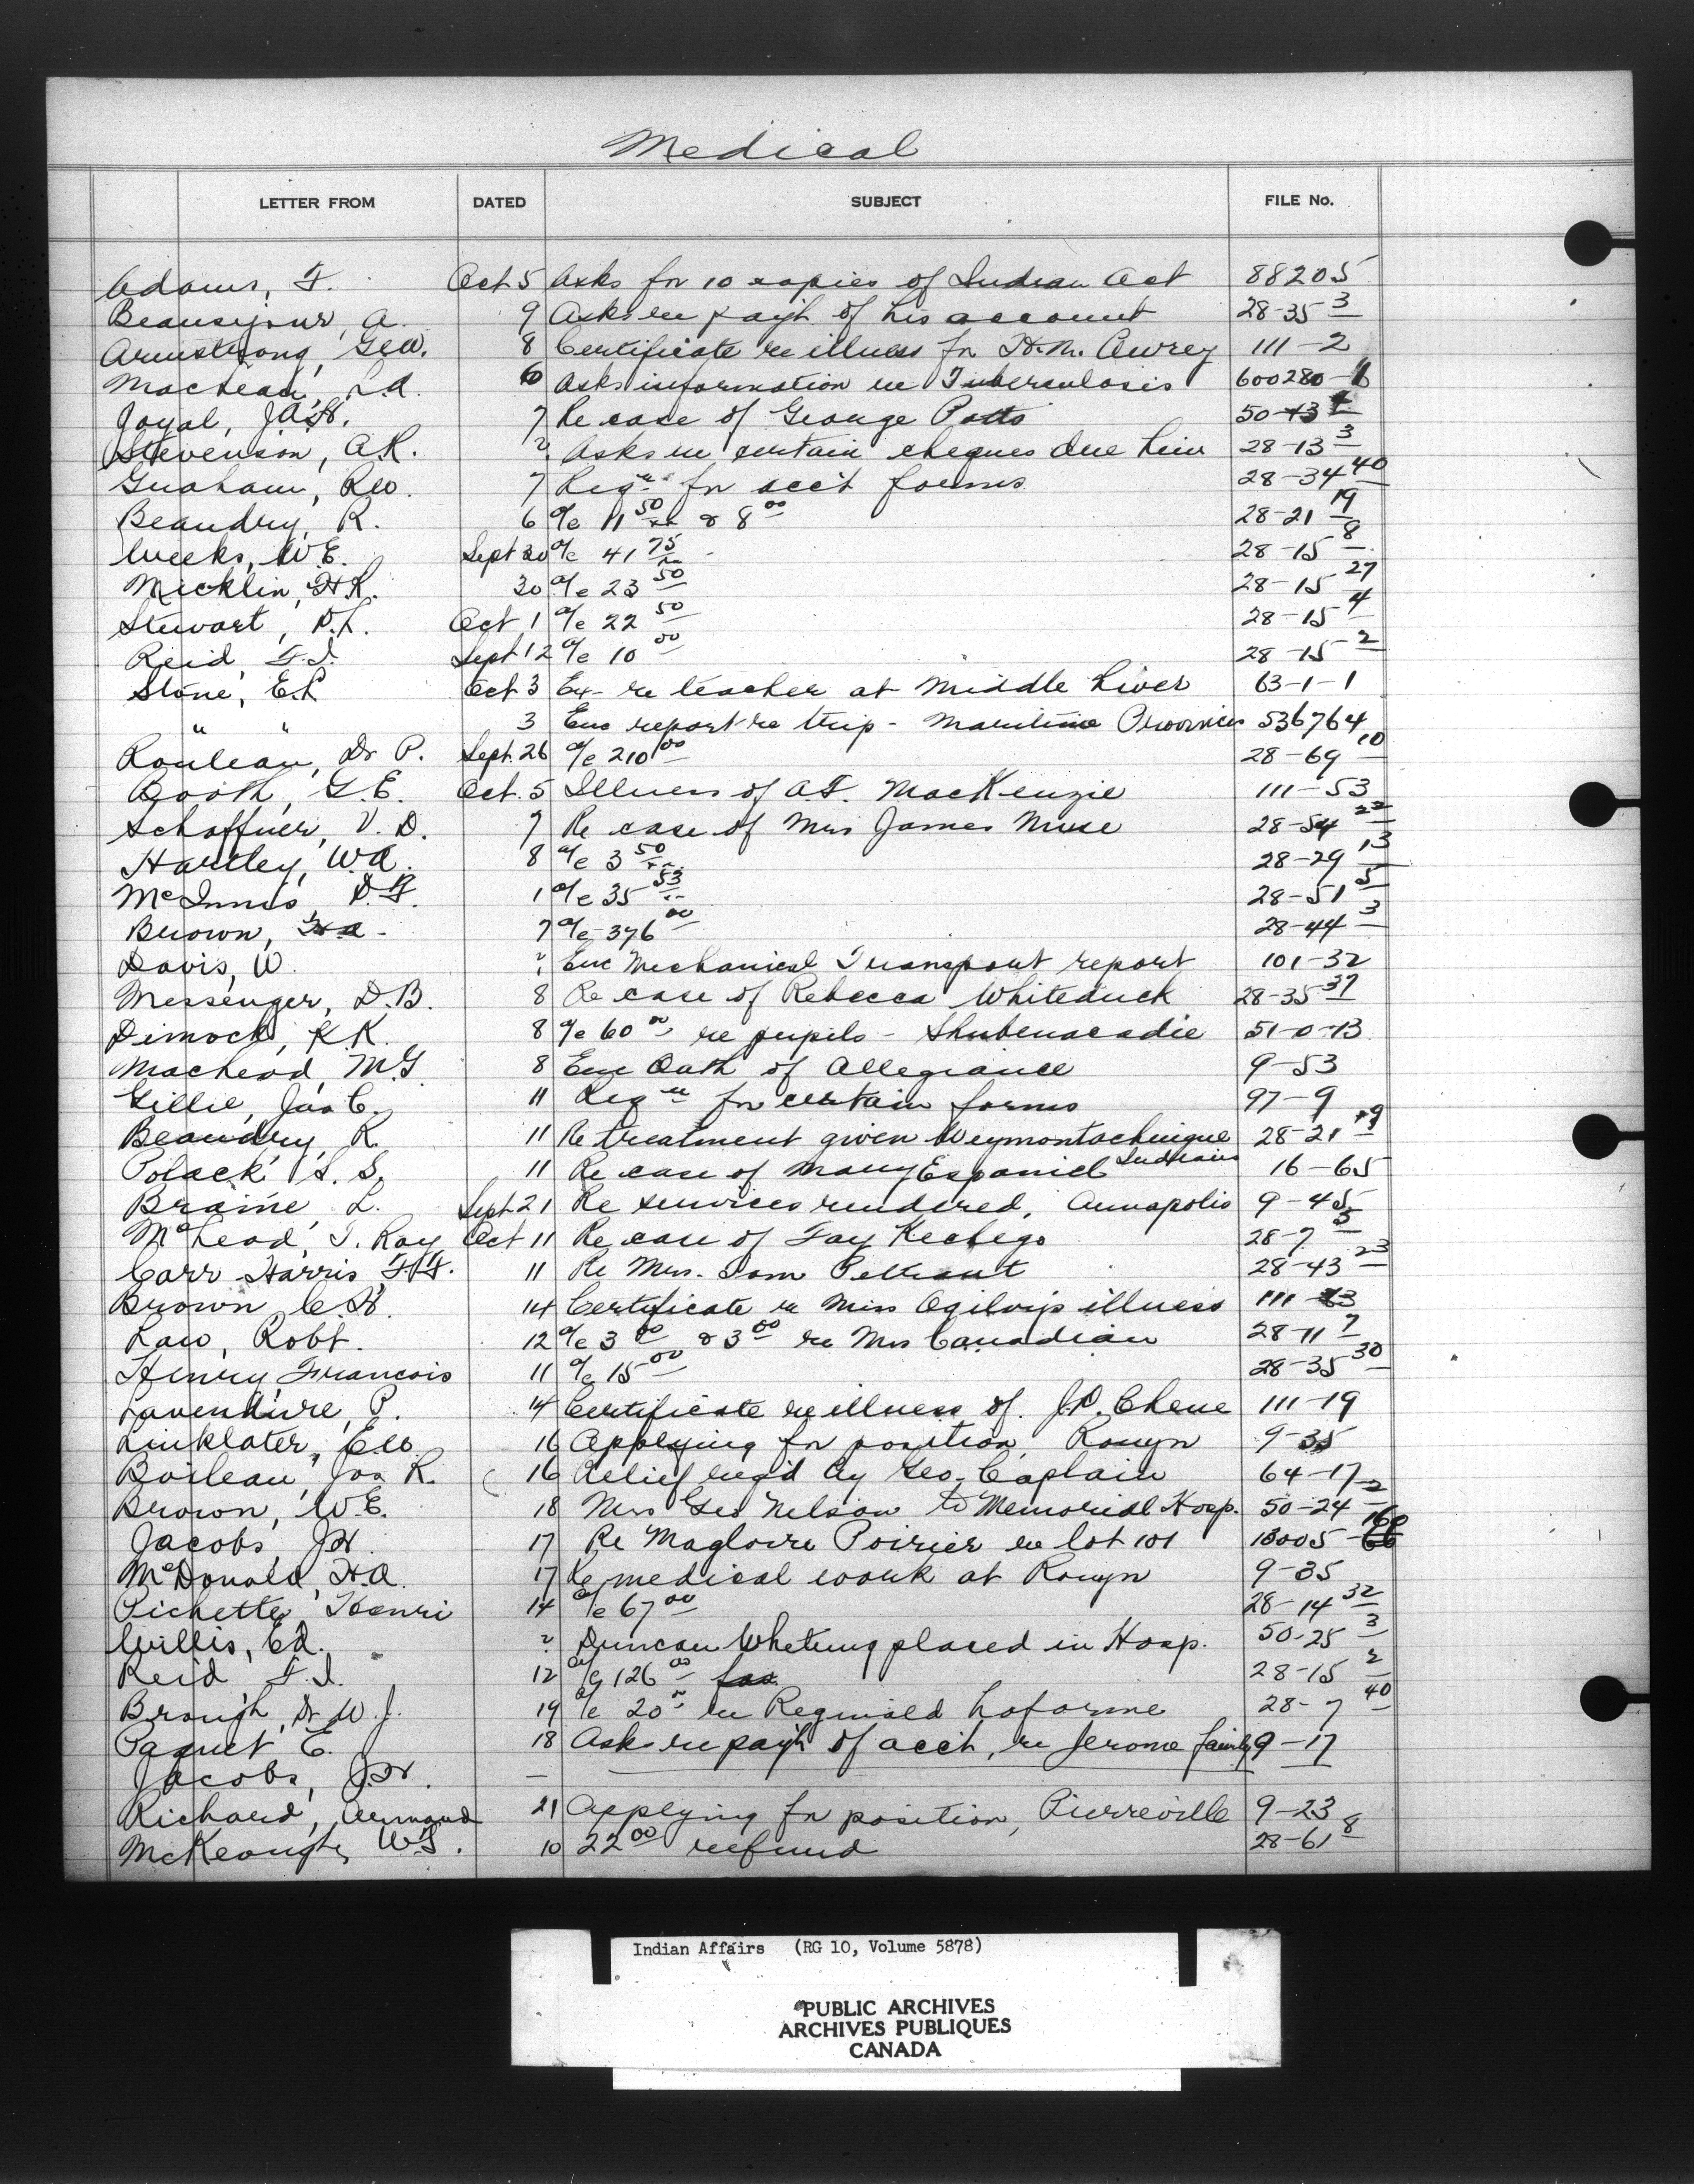 Medical
LETTER FROM DATED SUBJECT FILE No.
Adams, F. Oct 5 Asks for 10 copies of Indian Act 88205
Beausejour, A. 9 Asks re paym't of his account 28-35 3
Armstrong, Geo. 8 Certificate re illness for H.M. Awrey 111-2
MacLean, L.A. 6 Asks information re Tuberculosis 600280-1
Joyal, J.A.H. 7 Re case of George Potts 50-13
Stevenson, A.R. ? Asks re certain cheques due him 28-13 3
Graham, R.W. 7 Reqn for acct forms 28-34 40
Beaudry, R. 6 a/c 11 50 & 8 00 28-21 19
Weeks, W.E. Sept 30 a/c 41 75 28-15 8
Micklin, H.R. 30 a/c 23 50 28-15 27
Stewart, D.L. Oct 1 a/c 22 50 28-15 4
Reid, F.J. Sept 12 a/c 10 00 28-15 2
Stone, E.L Oct 3 re teacher at Middle River 63-1-1
" " 3 Enc report re trip - Maritime Provinces 536764
Rouleau, Dr P. Sept. 26 a/c 210 00 28-69 10
Booth, G.E. Oct. 5 Illness of A.F. MacKenzie 111-53
Schaffner, V.D. 7 Re case of Mrs James Muse 28-54 22
Hartley, W.A. 8 a/c 3 50 28-29 13
McInnis, D.F. 1 a/c 35 53 28-51 5
Brown, H.A. 7 a/c 376 00 28-44 3
Davis, W. ? Enc Mechanical Transport report 101-32
Messenger, D.B. 8 Re case of Rebecca Whiteduck 28-35 37
Dimock, R.K. 8 a/c 60 00 re pupils - Shubenacadie 51-0-13
MacLeod, M.G. 8 Enc Oath of Allegiance 9-53
Gillie, Jas C. 11 Reqn for certain forms 97-9
Beaudry, R. 11 Re treatment given Weymontachingue Indians 28-21 19
Polack, S.S. 11 Re case of Mary Espaniel 16-65
Braine, L. Sept 21 Re services rendered, Annapolis 9-45
McLeod, T. Ray Oct 11 Re case of Fay Kechego 28-7 5
Carr-Harris, F.F. 11 Re Mrs. Sam Peltrant 28-43 23
Brown, C.H. 14 Certificate re Miss Ogilvy's illness 111-13
Law, Robt. 12 a/c 3 00 & 3 00 re Mrs Canadian 28-11 7
Henry, Francois 11 a/c 15 00 28-35 30
Laventure, P. 14 Certificate re illness of J.P. Chene 111-19
Linklater, E.W. 16 Applying for position, Rouyn 9-35
Boileau, Jos R. 16 Relief req'd by Geo. Caplain 64-17
Brown, W.E. 18 Mrs Geo Nelson to Memorial Hosp. 50-24 2
Jacobs, J.H. 17 Re Magloire Poirier re lot 101 13005-
McDonald, H.A. 17 Re medical work at Rouyn 9-35
Pichette, Henri 14 a/c 67 00 28-14 32
Willis, Ed. ? Duncan Whetung placed in Hosp. 50-25 3
Reid, F.J. 12 a/c 126 00 28-15 2
Brough, Dr W.J. 19 a/c 20 re Reginald Laforme 28-7 40
Paquet E. 18 Asks re paym't of acct, re Jerome family 9-17
Jacobs, J.H. —
Richard, Armand 21 Applying for position, Pierreville 9-23
McKeough, W.G. 10 22 00 refund 28-61 8
Indian Affairs (RG 10, Volume 5878)
PUBLIC ARCHIVES
ARCHIVES PUBLIQUES
CANADA